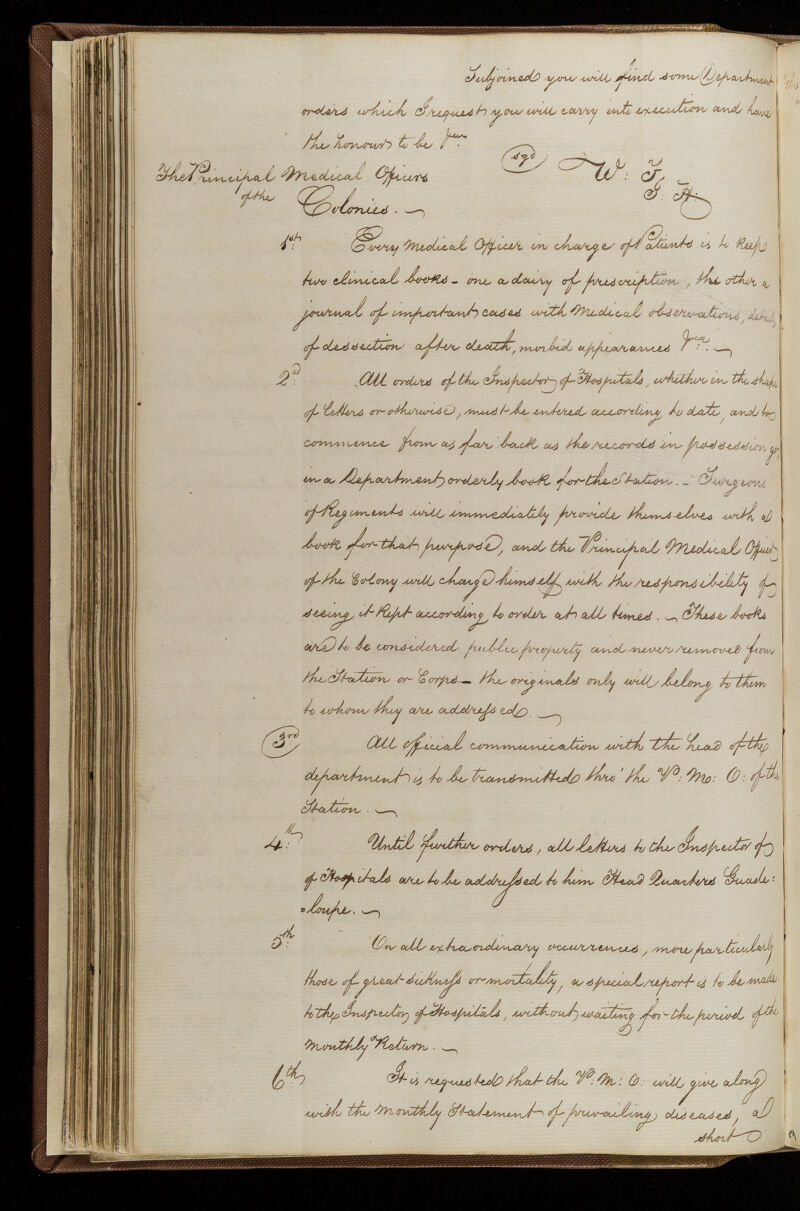 Subjoined you will find some Department
orders which I request you will carry into execution and have
the honour to be &ca
(sgd) W: F.
The Principal Medical Officers
G. H.
of the
Colonies.
1st Every Medical Officer in charge of Patients is to keep
two clinical books - one a dairy of prescription, the other a
journal of important cases with Medical observations, details
of dessection after death, morbid appearances &ca.
2d All orders of the Inspector of Hospitals, whether in the shape
of letters or otherwise, must be entered according to date, and to
commence from as far back as the records in possession go,
in a Department orderly book for the Station. - Surgeons
of Regiments will immediately provide themselves with a
book for that purpose, and the Principal Medical Officer
of the Colony will charge himself with the responsibility of
seeing it kept according to order at all times. - These books
are to be considered public property and never removed from
the Station or Corps - the originals only will belong to them
to whom they are addressed.
3rd All official communication with the head of the
department is to be transmitted thro' the P: Mo: O: of the
Station.
4th Until further orders, all letters to the Inspector of
of Hospitals are to be addressed to him Head Quarters Guade=
=loupe.
5th On all extraordinary occurrences, more particularly
those of great sickness or mortality, a special report is to be made
to the Inspector of Hospitals, without waiting for the period of the
Monthly Return.
6th It is requested that the P: M: O: will give along
with the Monthly Statement of prevailing diseases, a
short